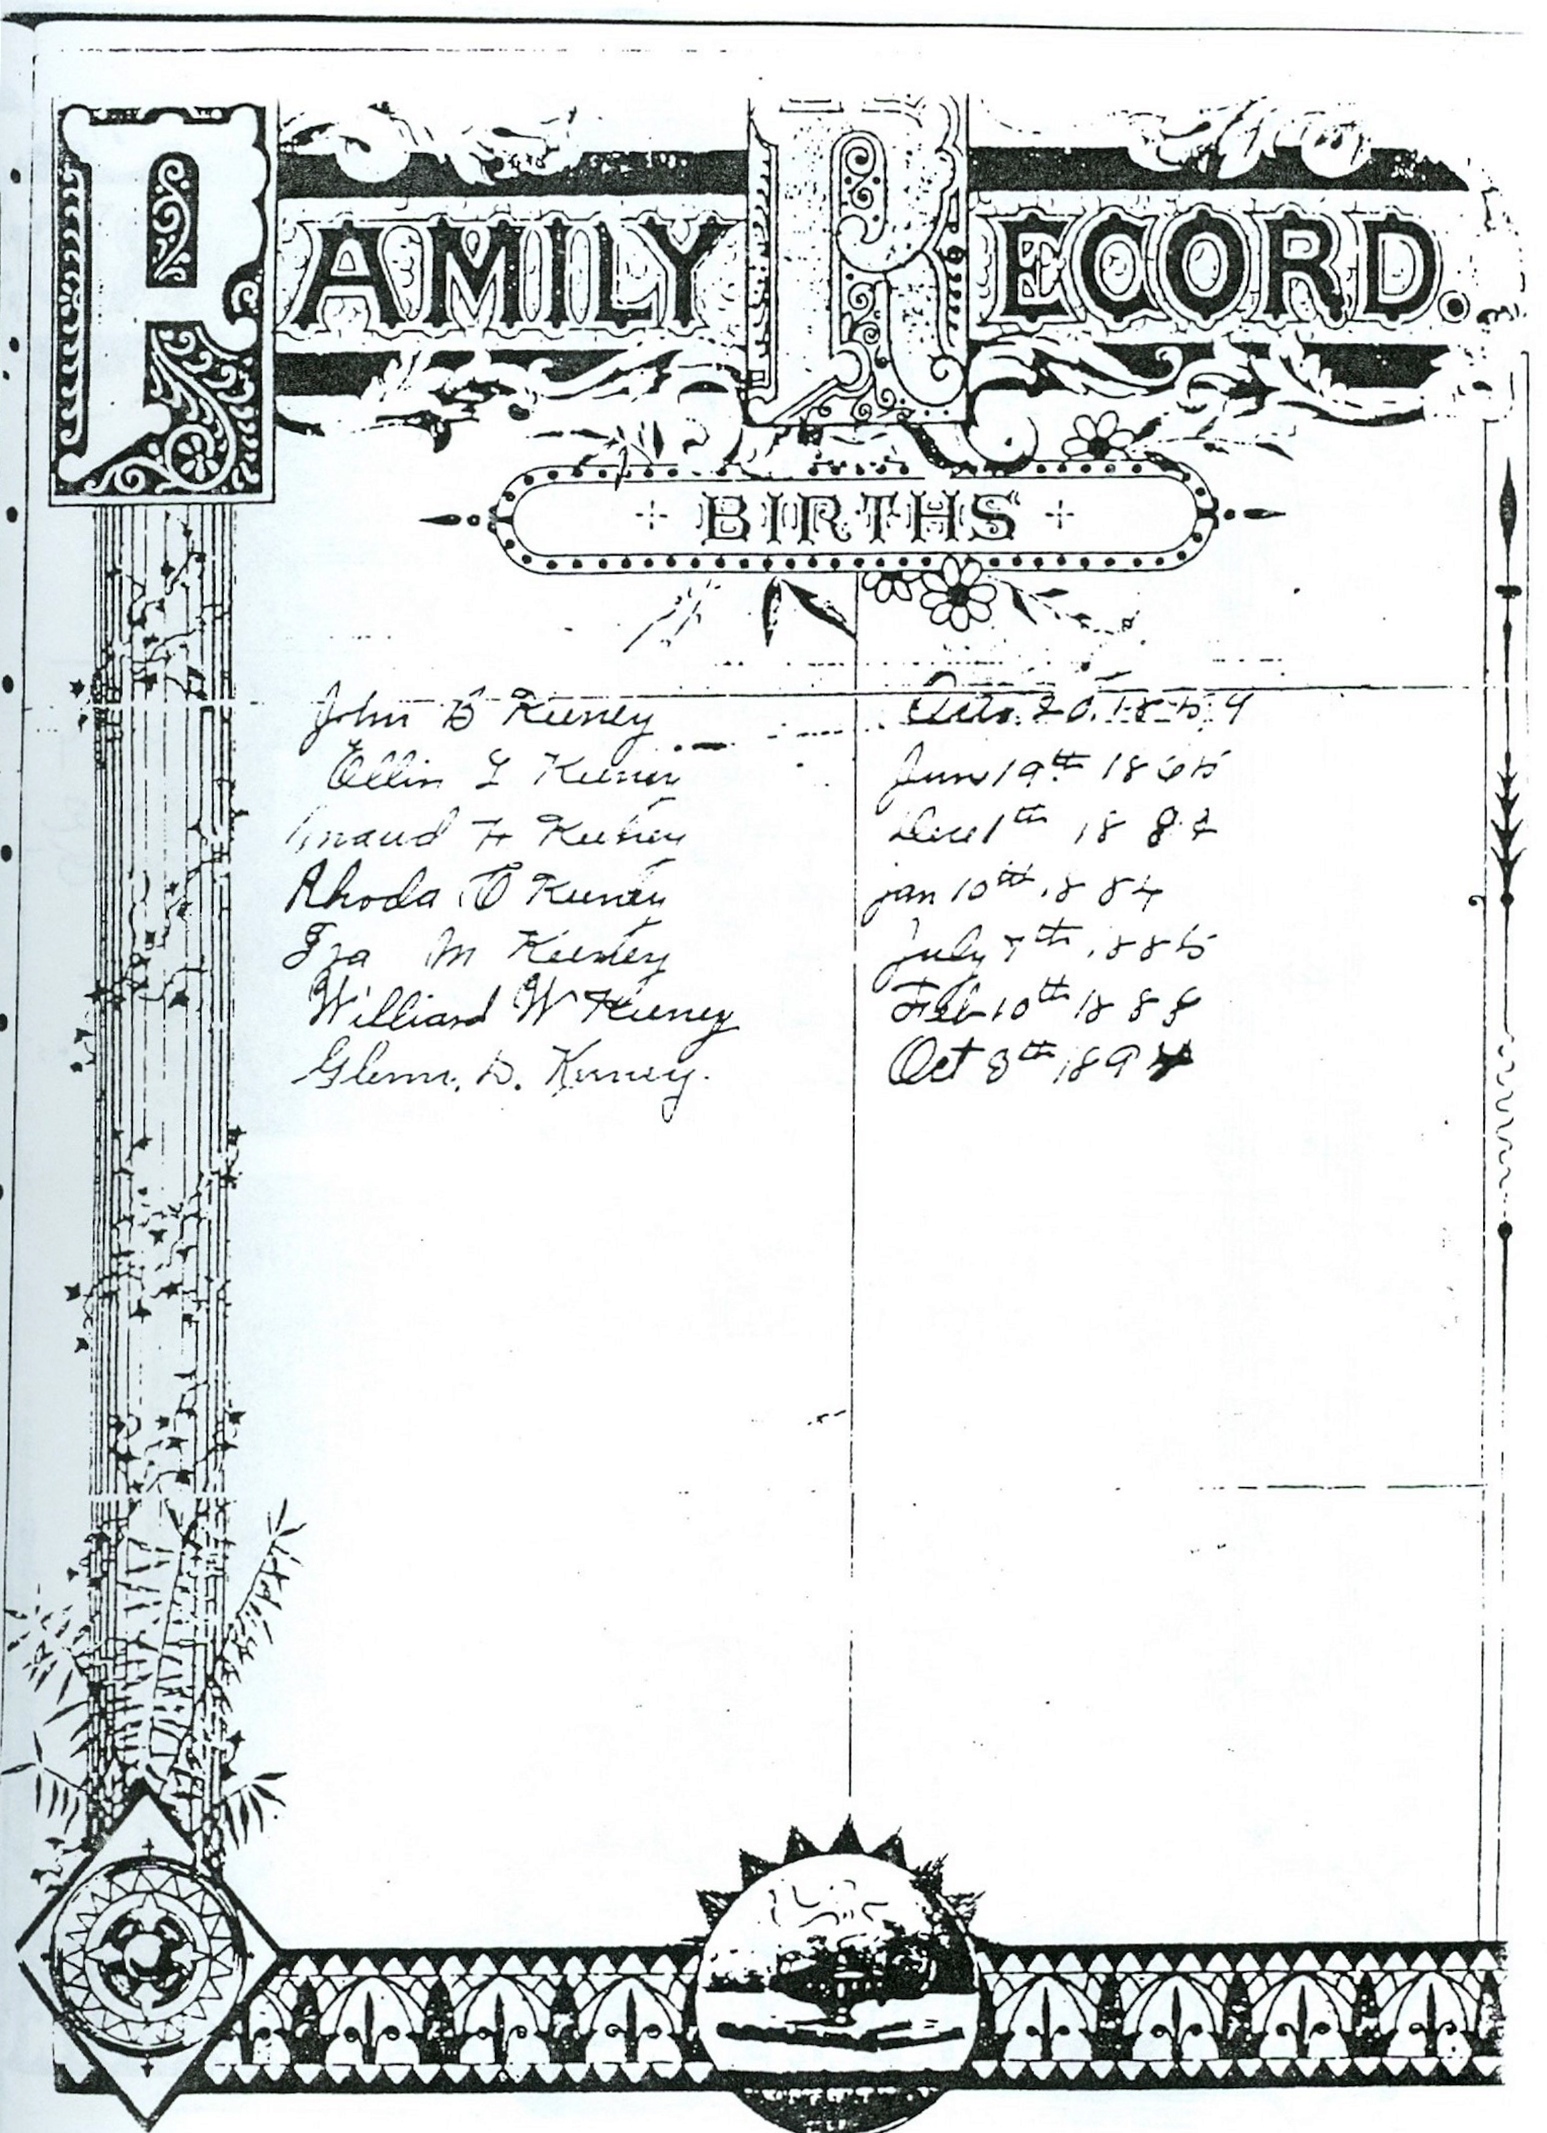 FAMILY RECORD.
BIRTHS
John B Keeney 20. 1854
Ellin L Keeney June 19th 1865
Maud H Keeney Dec 1th 1882
Rhoda E Keeney jan 10th 1884
Ira M Keeney July 7th 1885
Williard W Keeney Feb 10th 1888
Glenn. D. Keeney. Oct 8th 189